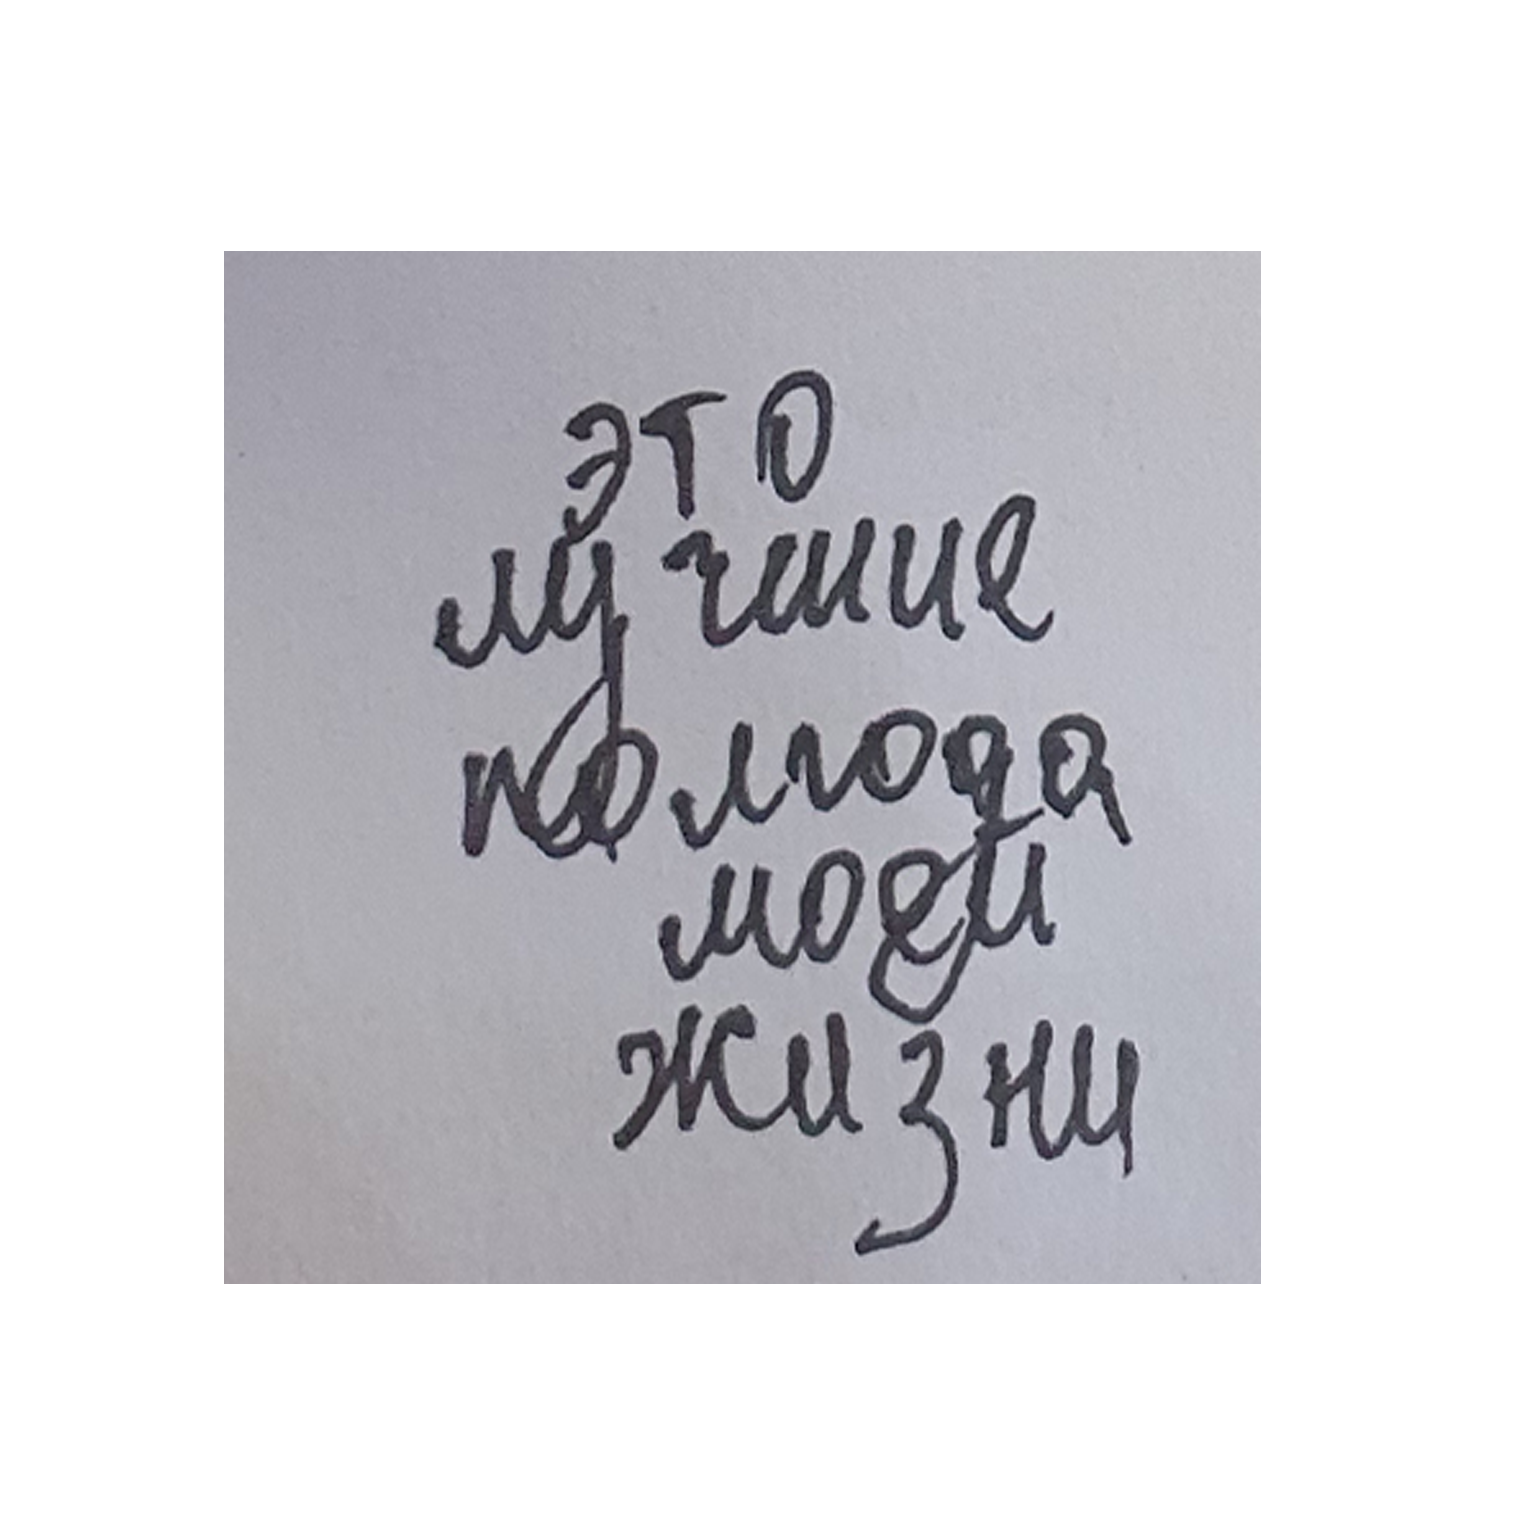 это
лучшие
полгода
моей
жизни